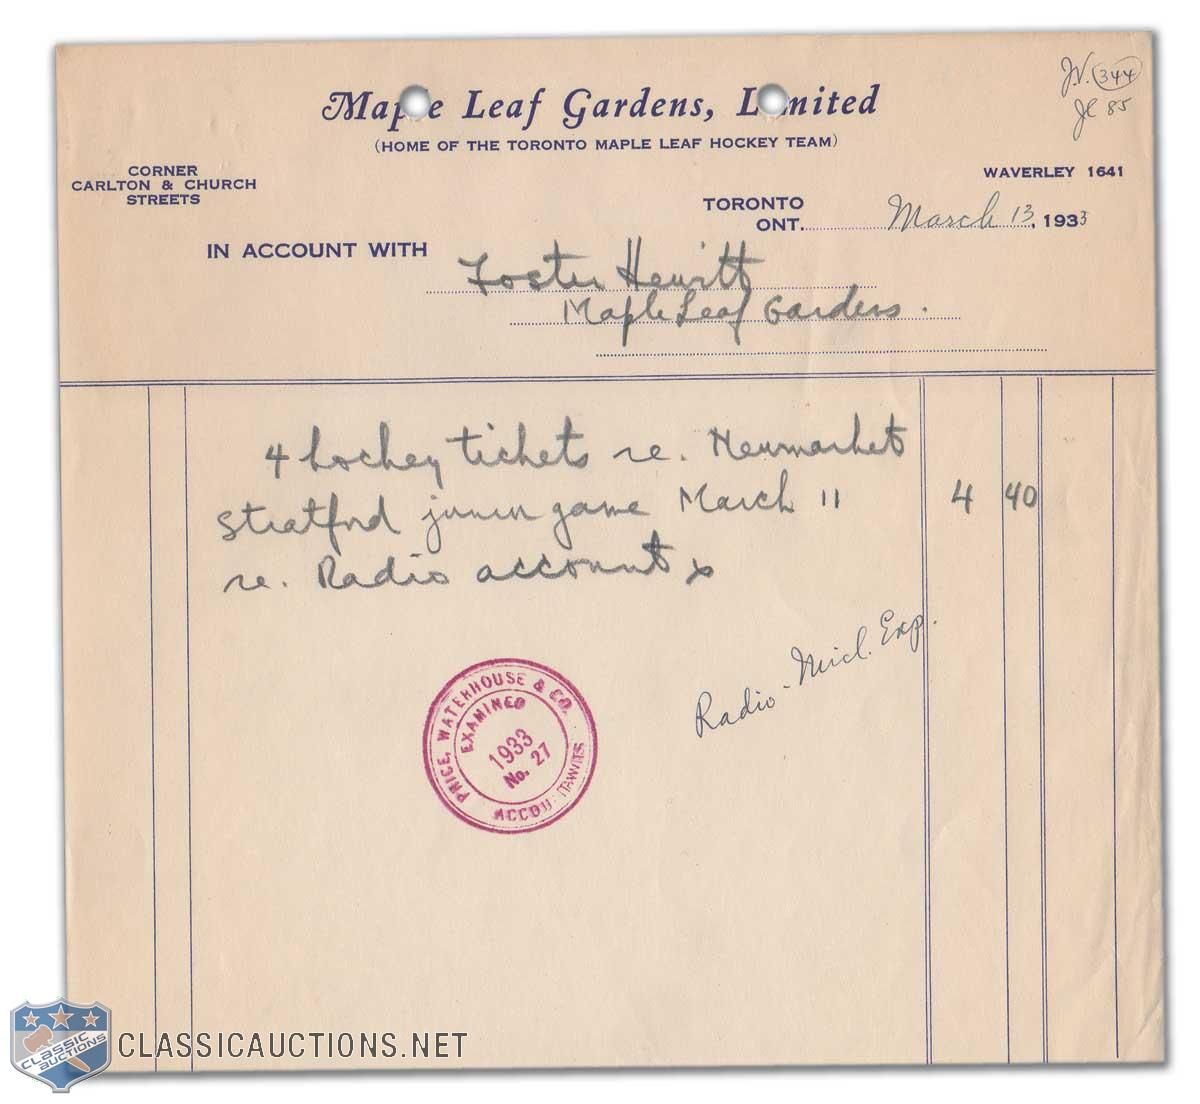 JV. 344
JC 85
Maple Leaf Gardens, Limited
(HOME OF THE TORONTO MAPLE LEAF HOCKEY TEAM)
CORNER
CARLTON & CHURCH
STREETS
WAVERLEY 1641
TORONTO
ONT. March 13, 1933
IN ACCOUNT WITH Foster Hewitt
Maple Leaf Gardens.
4 hockey tickets re. Newmarket
Stratford junior game March 11 4 40
re. Radio account
Radio - Micl. Exp.
PRICE, WATERHOUSE & CO.
EXAMINED
1933
No. 27
ACCOUNTANTS
CLASSIC
AUCTIONS
CLASSICAUCTIONS.NET